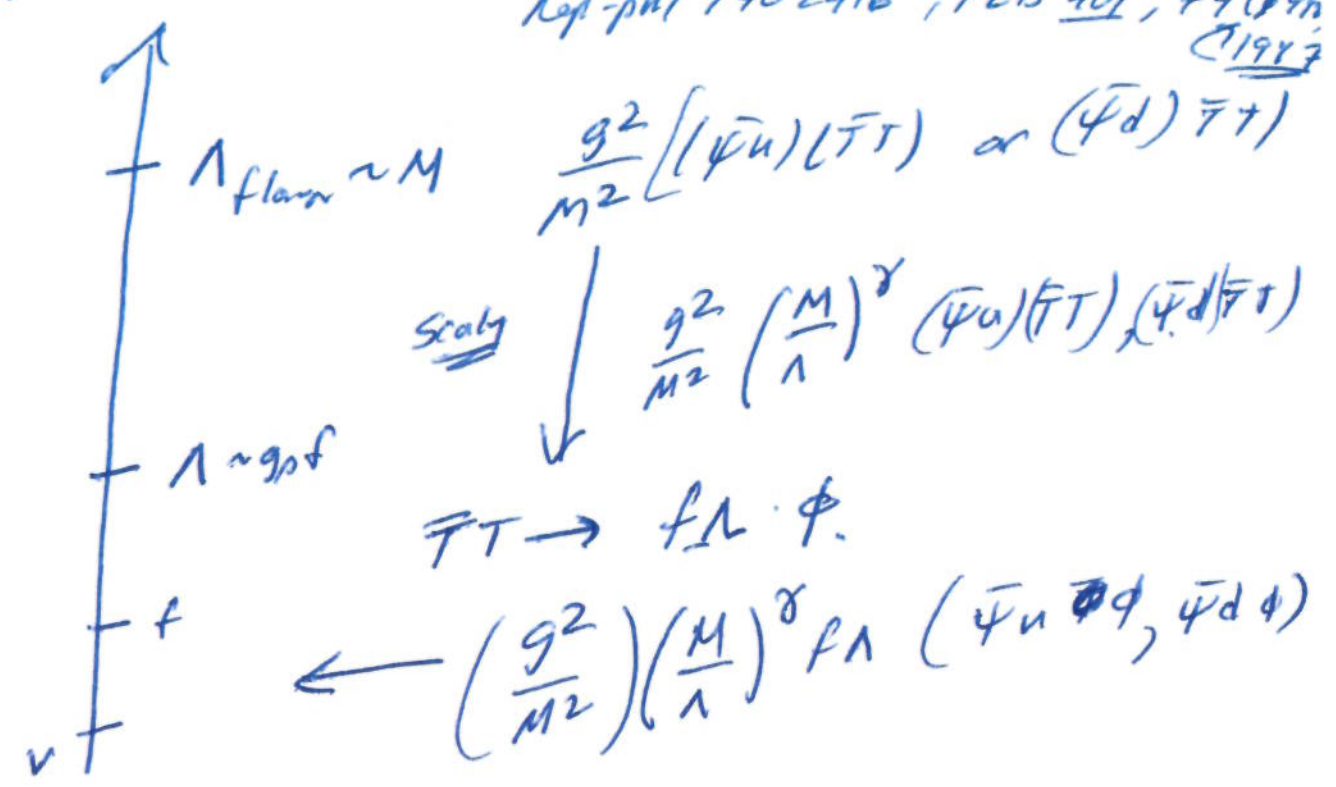 (1987
Λ_flavor ~ M
g²/M² [(ψ̄u)(T̄T) or (ψ̄d) T̄T)
g²/M² (M/Λ)^γ (ψ̄u)(T̄T), (ψ̄d)(T̄T)
Λ ~ gρf
T̄T → fΛ · φ.
f
(g²/M²)(M/Λ)^γ fΛ (ψ̄u φ, ψ̄d φ)
v